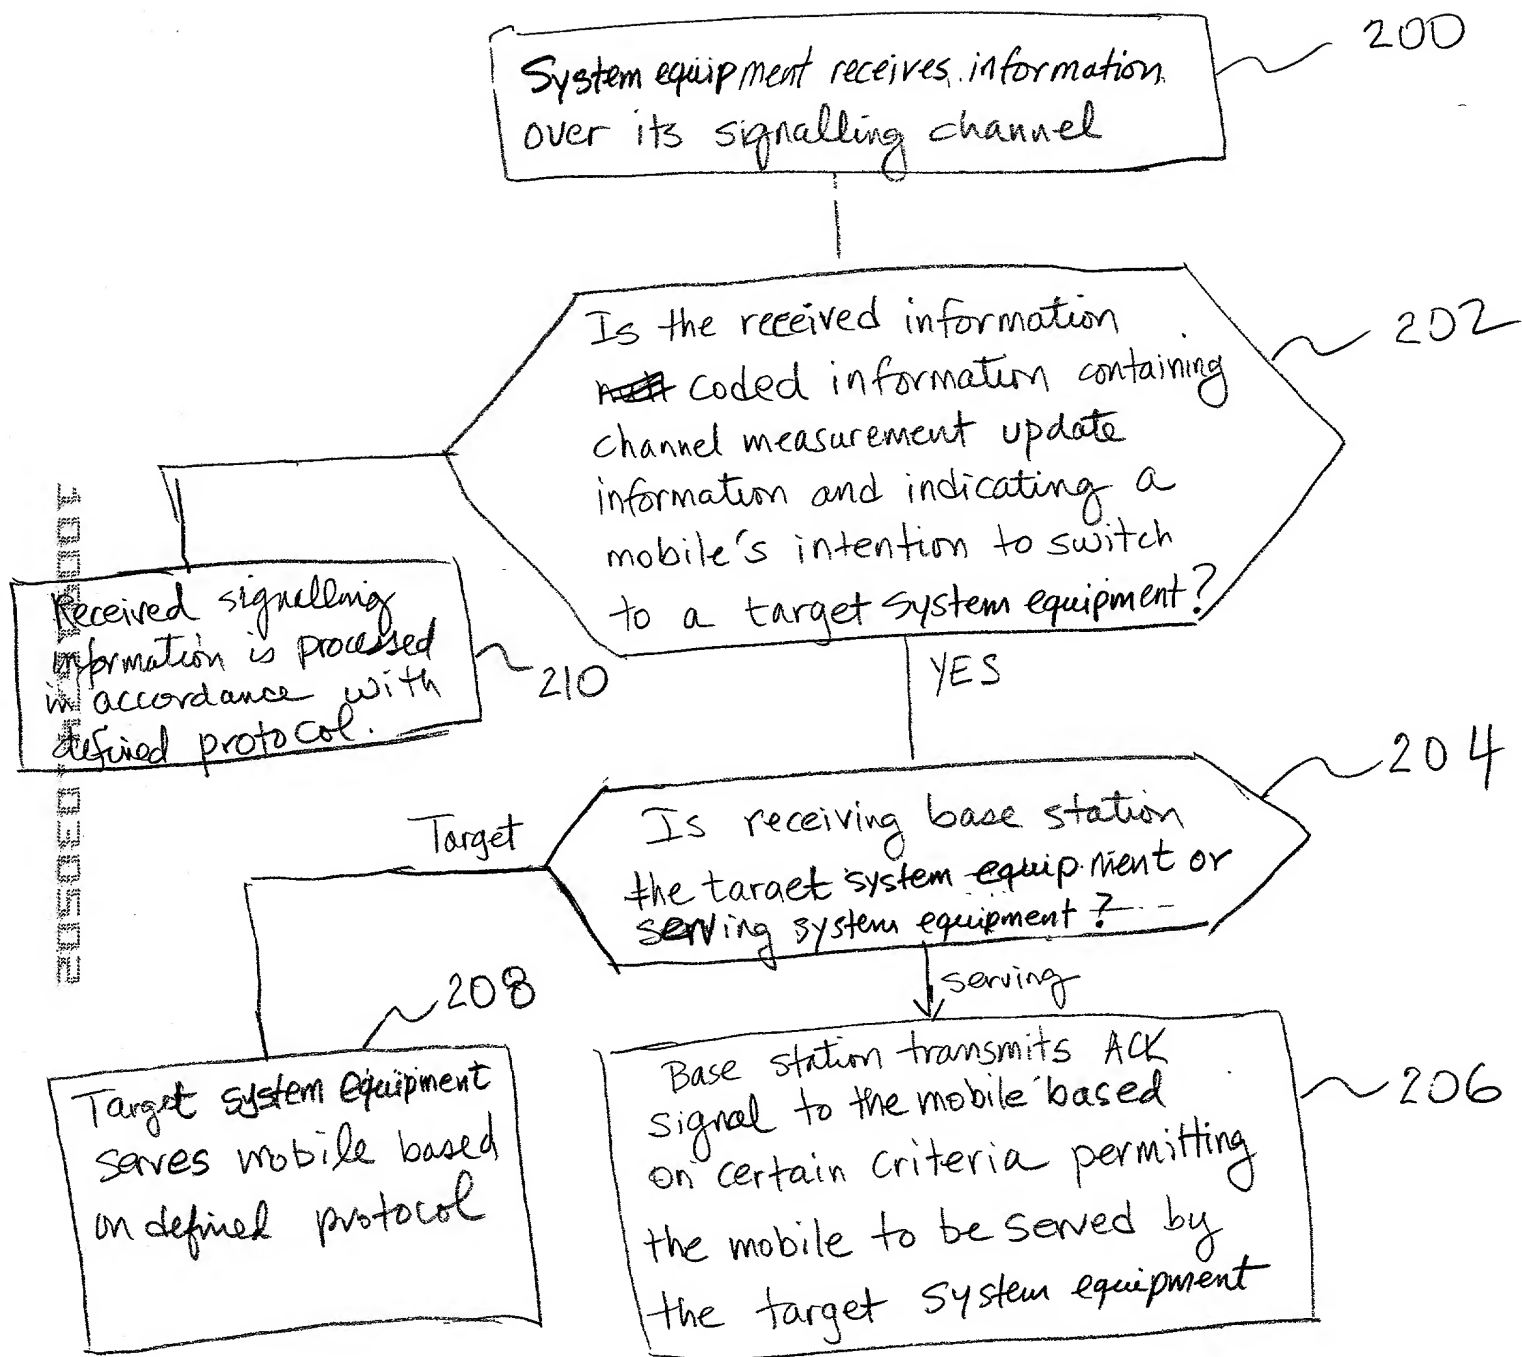 200
System equipment receives information
over its signalling channel
202
Is the received information
coded information containing
channel measurement update
information and indicating a
mobile's intention to switch
to a target system equipment?
Received signalling
information is processed
in accordance with
defined protocol.
210
YES
204
Target
Is receiving base station
the target system equipment or
serving system equipment?
serving
208
Target system equipment
serves mobile based
on defined protocol
206
Base station transmits ACK
signal to the mobile based
on certain criteria permitting
the mobile to be served by
the target system equipment